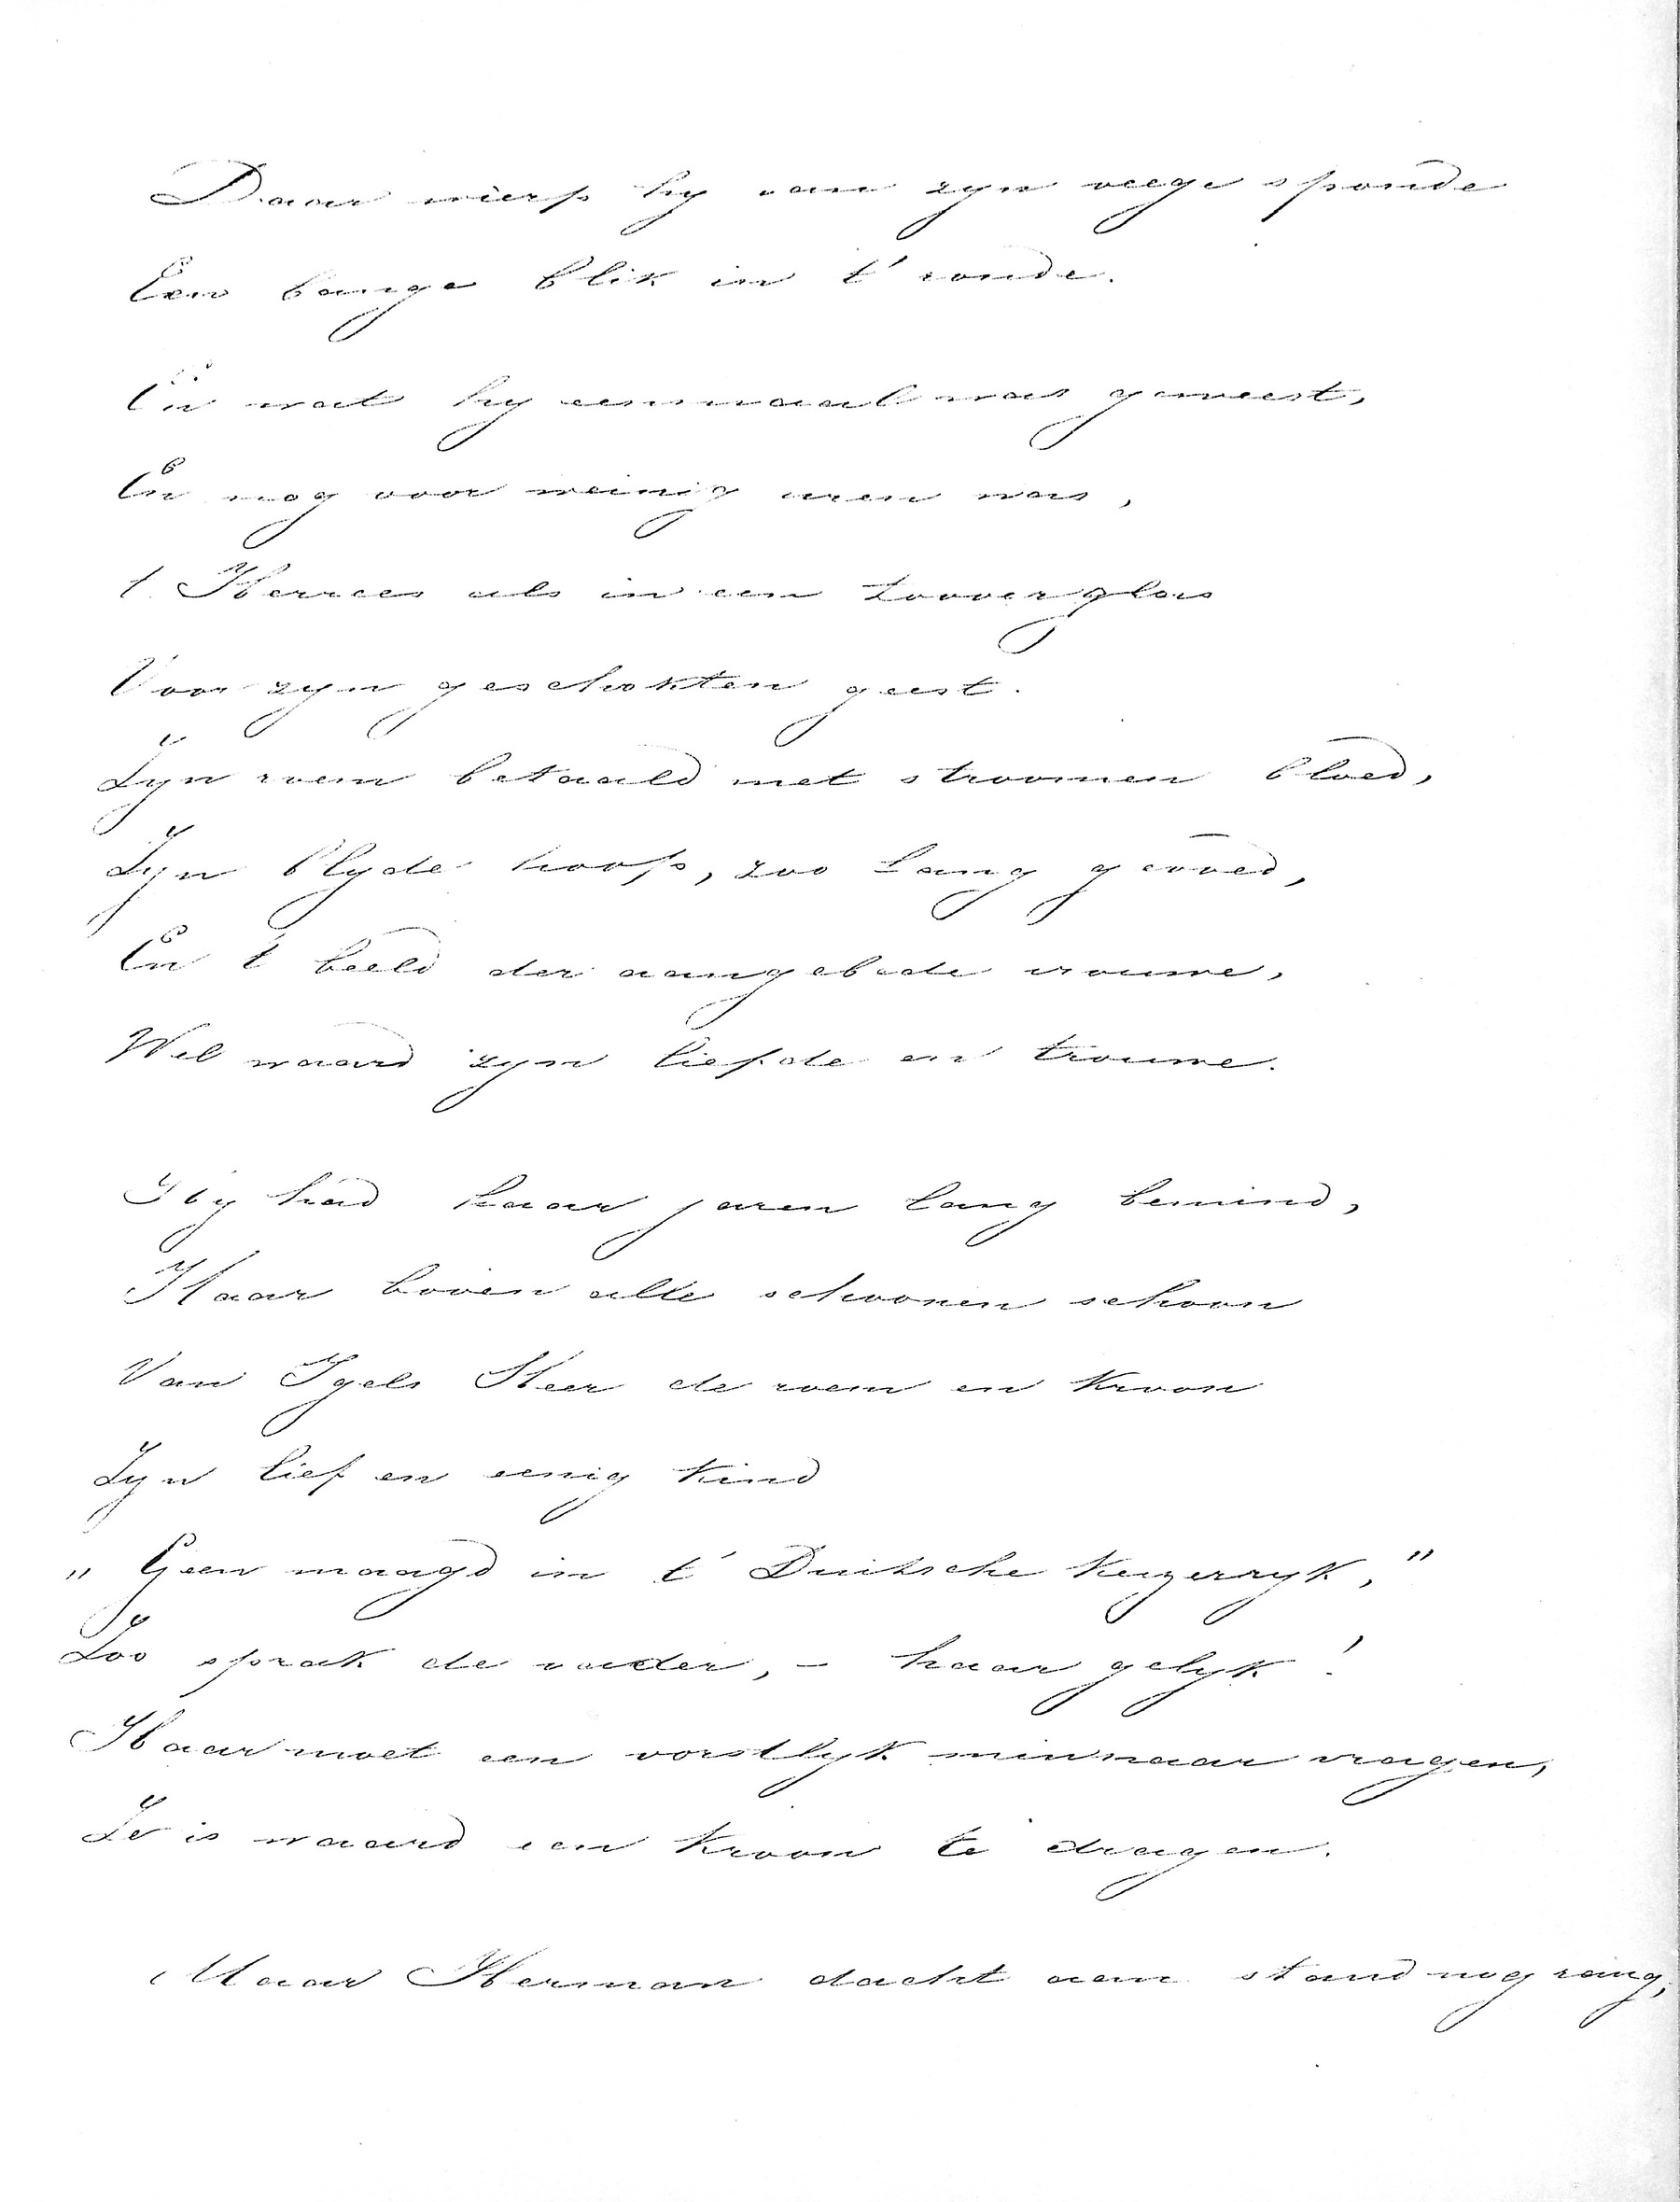 Daar wierp hy van zyn veege sponde
Een bange blik in t' ronde.
En wat hy eenmaal was geweest,
En nog voor weinig uren was,
t Herrees als in een tooverglas
Voor zyn geschokten geest.
Zyn roem betaald met stroomen bloed,
Zyn blyde hoop, zoo lang gevoed,
En t beeld der aangebede vrouwe,
Wel waard zyn liefde en trouwe.
Hy had haar jaren lang bemind,
Haar boven alle schoonen schoon
Van Ygels Heer de roem en kroon
Zyn lief en eenig kind
„ Geen maagd in t' Duitsche keyzerryk,"
Zoo sprak de vader, - haar gelyk!
Haar moet een vorstlyk minnaar vragen,
Ze is waard een kroon te dragen.
Maar Herman dacht aan stand nog rang,